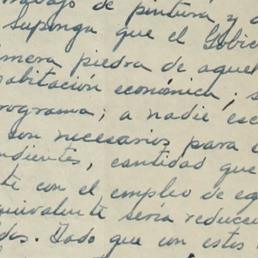 trabajo de pintura, y d
suponga que el Gobie
imera piedra de aquel
abitación económica; s
programa; a nadie esc
son necesarios para c
ndientes, cantidad que
te con el empleo de eq
quivalente sería reducc
dos. Dado que con estos